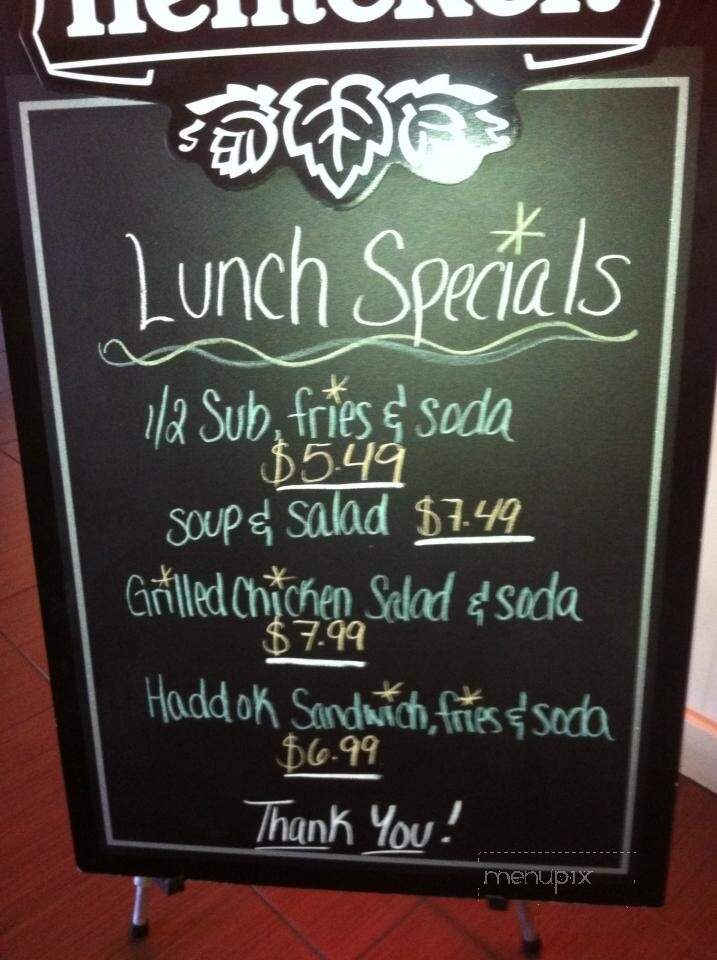 Heineken
Lunch Specials
1/2 Sub, fries & soda
$5.49
soup & salad $7.49
Grilled Chicken Salad & soda
$7.99
Haddok Sandwich, fries & soda
$6.99
Thank You!
menupix